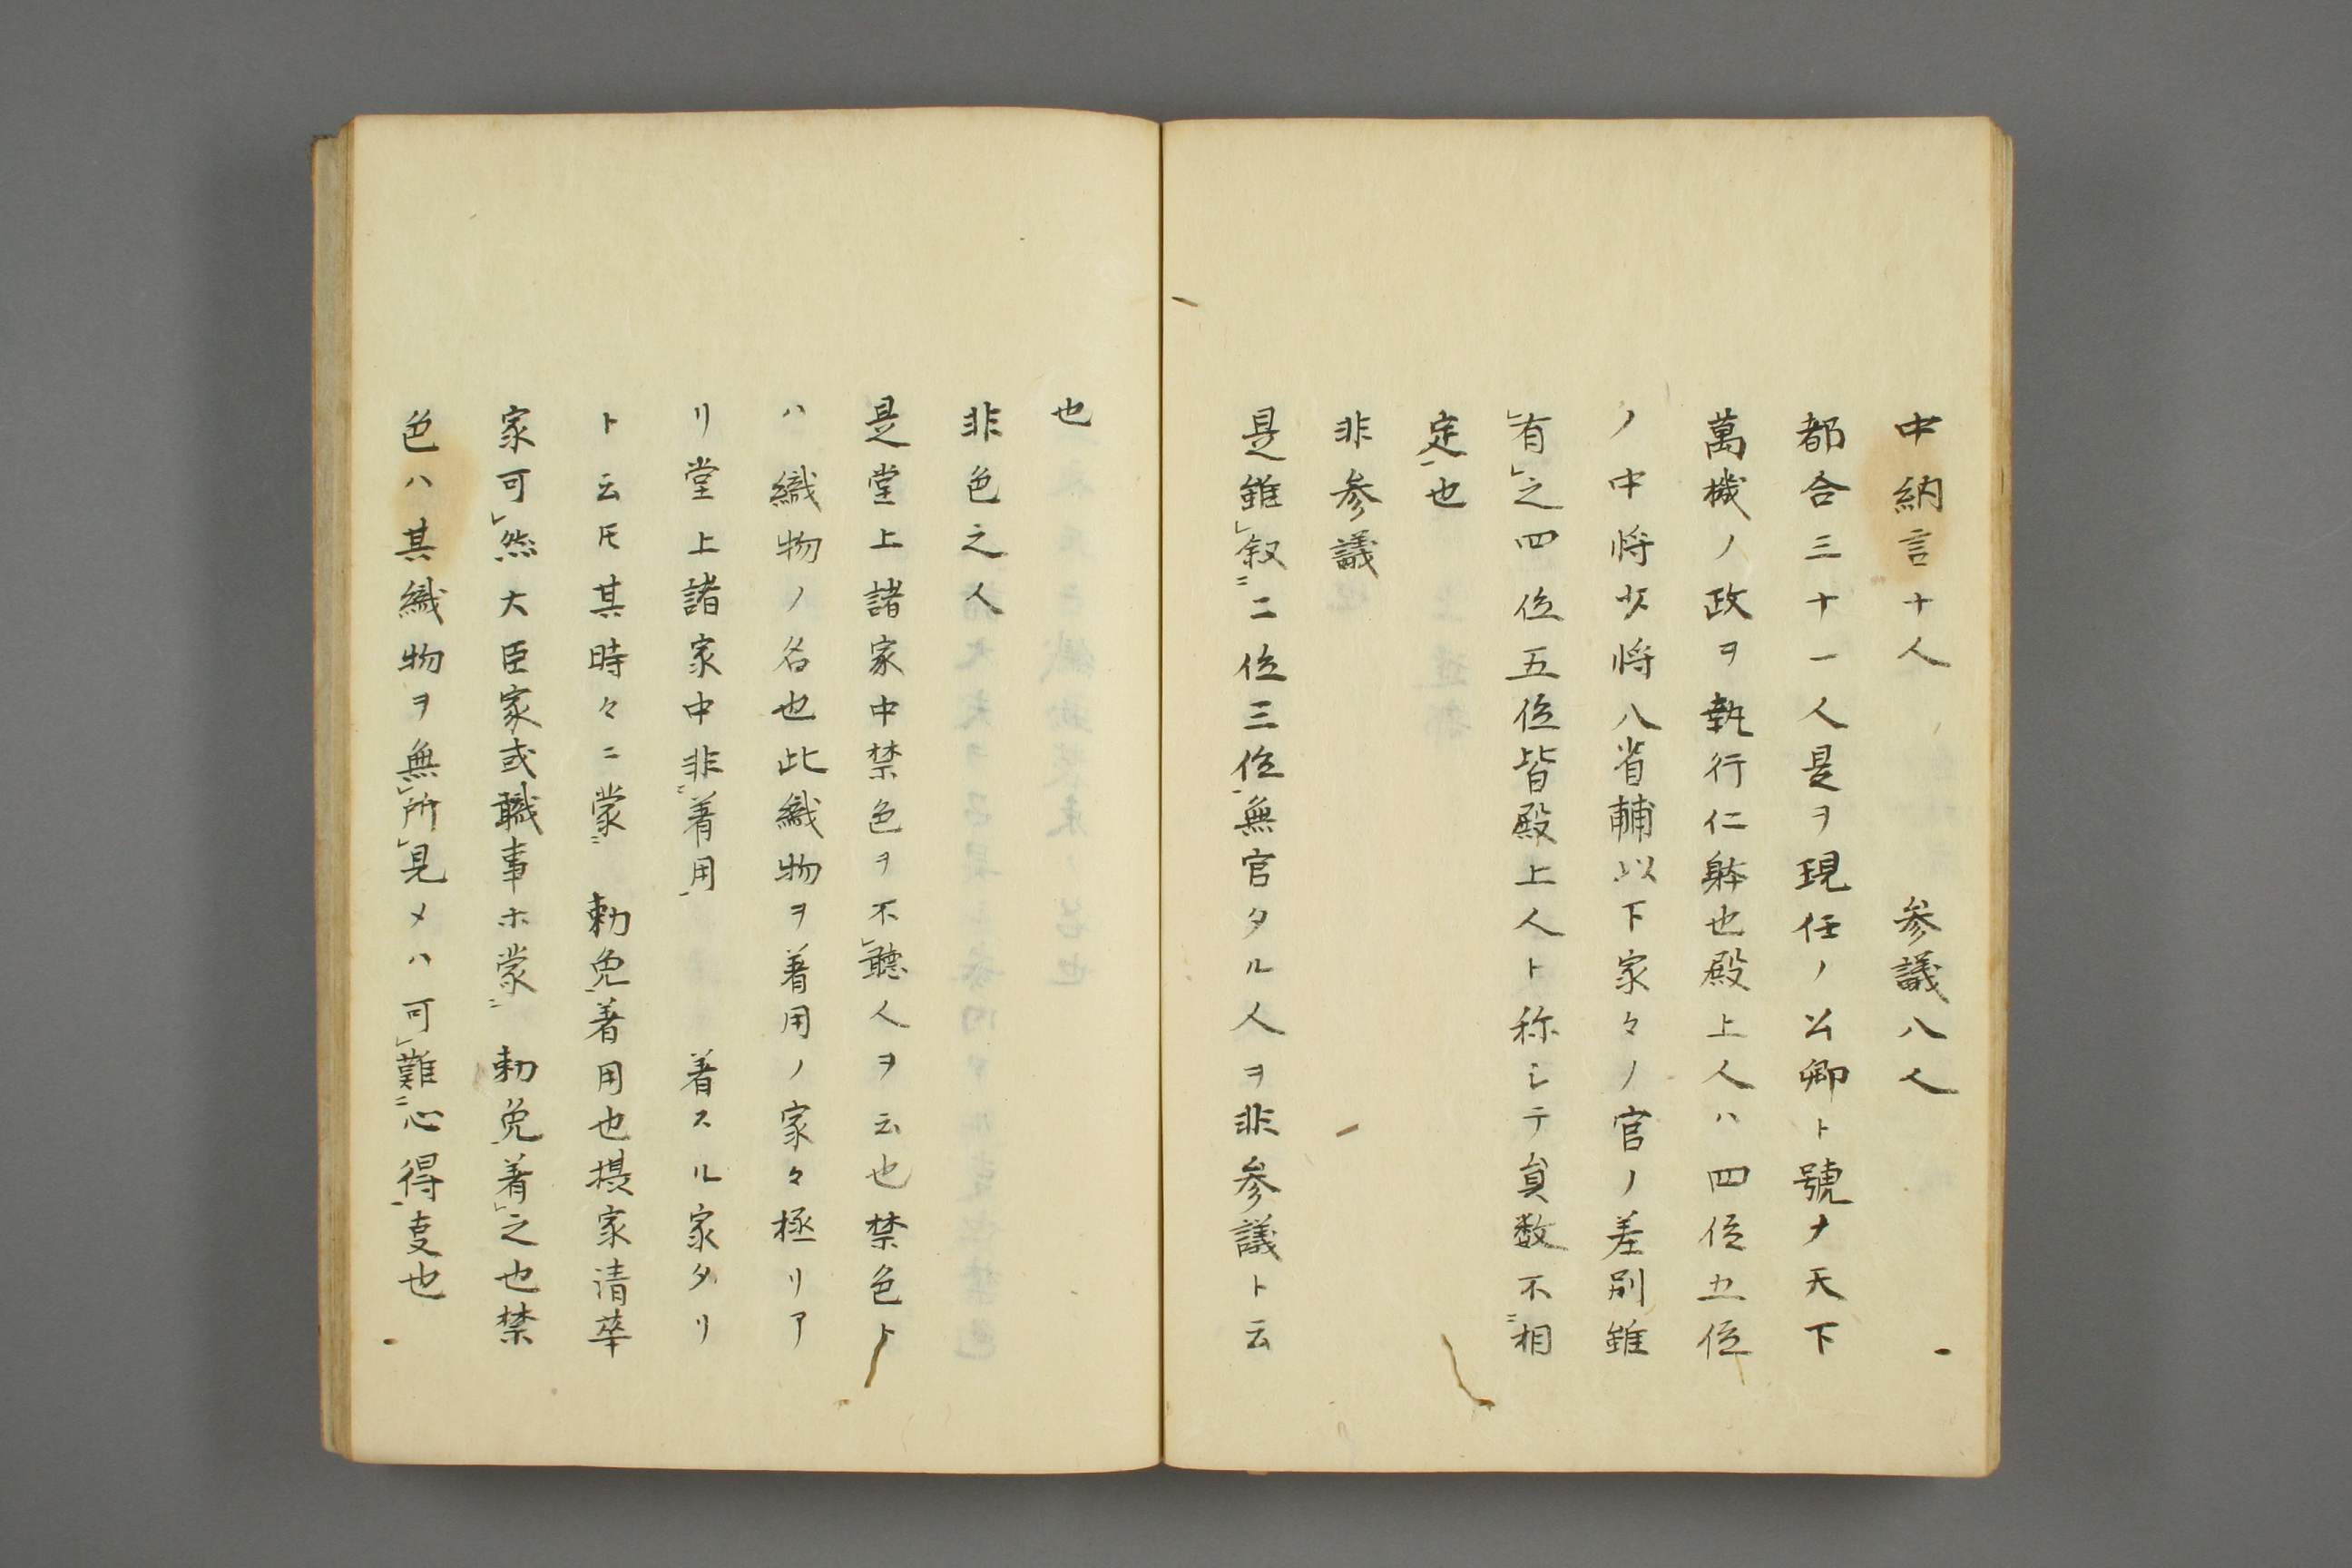 中納言十人　　　参議八人
都合三十一人是ヲ現任ノ公卿ト號ナ天下
萬機ノ政ヲ執行仁躰也殿上人ハ四位五位
ノ中将少将八省輔以下家々ノ官ノ差別雖
㆑有㆑之四位五位皆殿上人ト称シテ員数不㆓相
定㆒也
非参議
是雖㆑叙㆓二位三位㆒無官タル人ヲ非参議ト云
也
非色之人
是堂上諸家中禁色ヲ不㆑聴人ヲ云也禁色ト
ハ織物ノ名也此織物ヲ着用ノ家々極リア
リ堂上諸家中非㆓着用㆒　　着スル家タリ
ト云㕝其時々ニ蒙㆓　勅免㆒着用也摂家清華
家可㆑然大臣家或職事ホ蒙㆓　勅免㆒着㆑之也禁
色ハ其織物ヲ無㆑所㆑見メハ可㆑難㆓心得㆒叓也